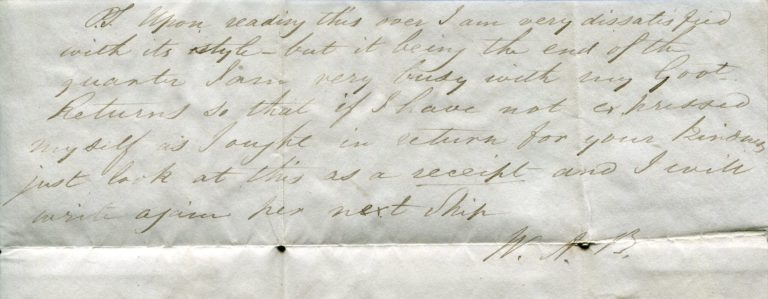 P.S. Upon reading this over I am very dissatisfied
with its style - but it being the end of the
quarter I am very busy with my Govt.
Returns so that if I have not expressed
myself as I ought in return for your kindness
just look at this as a receipt and I will
write again per next Ship
W. A. B.